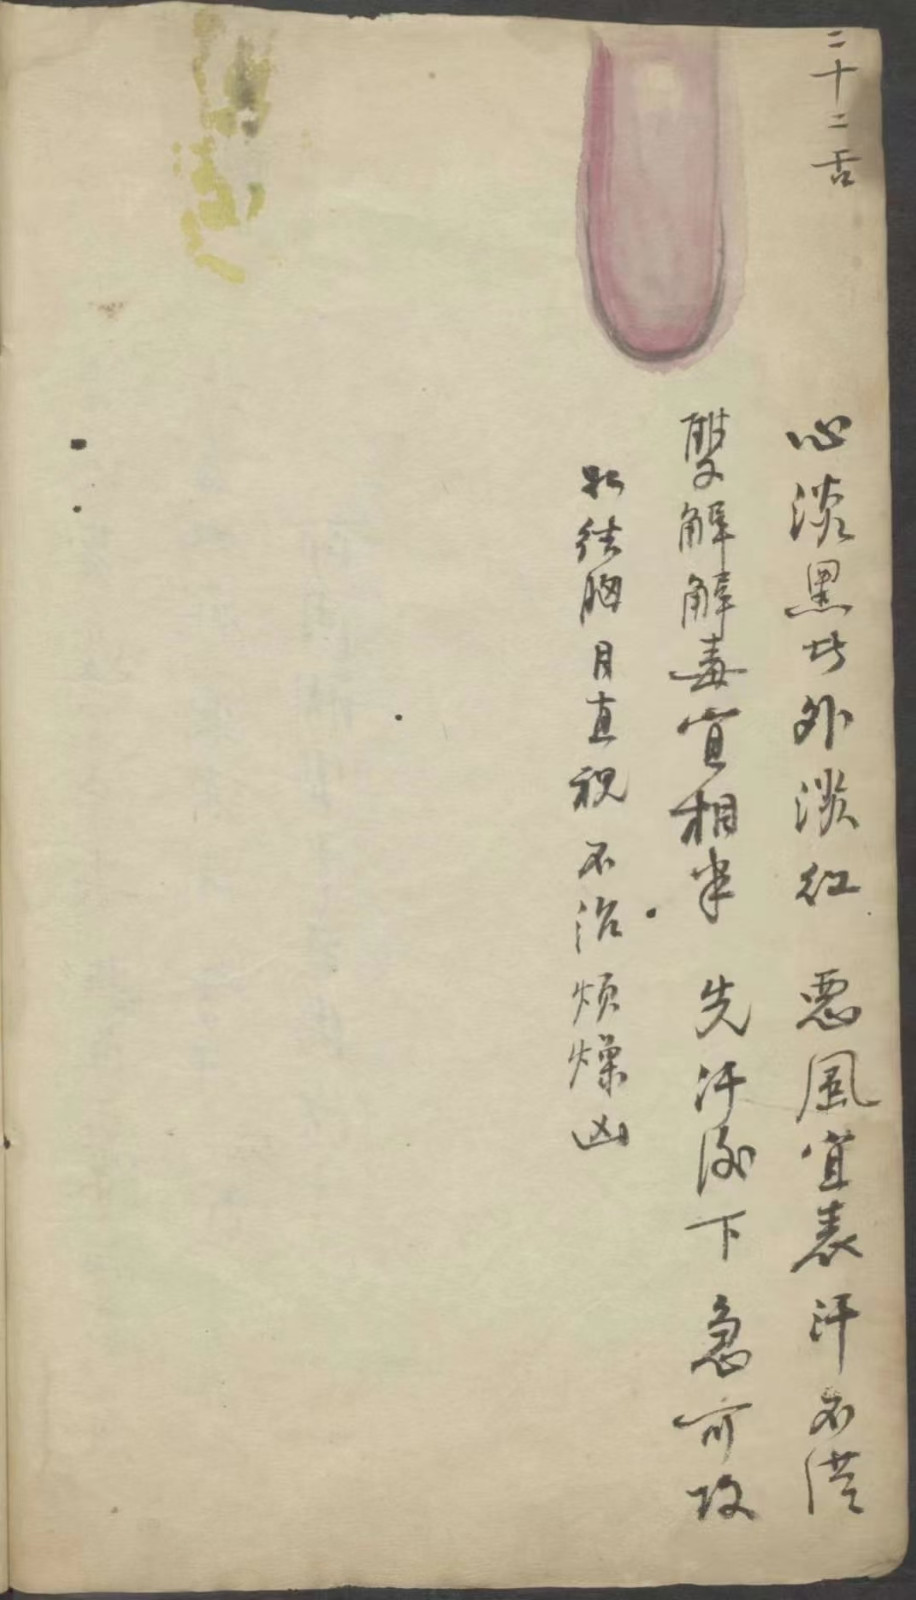 二十二舌
心淡黑者外淡红 恶風宜表汗不洪
雙解解毒宜相半 先汗後下急可攻
結胸目直視不治煩燥凶